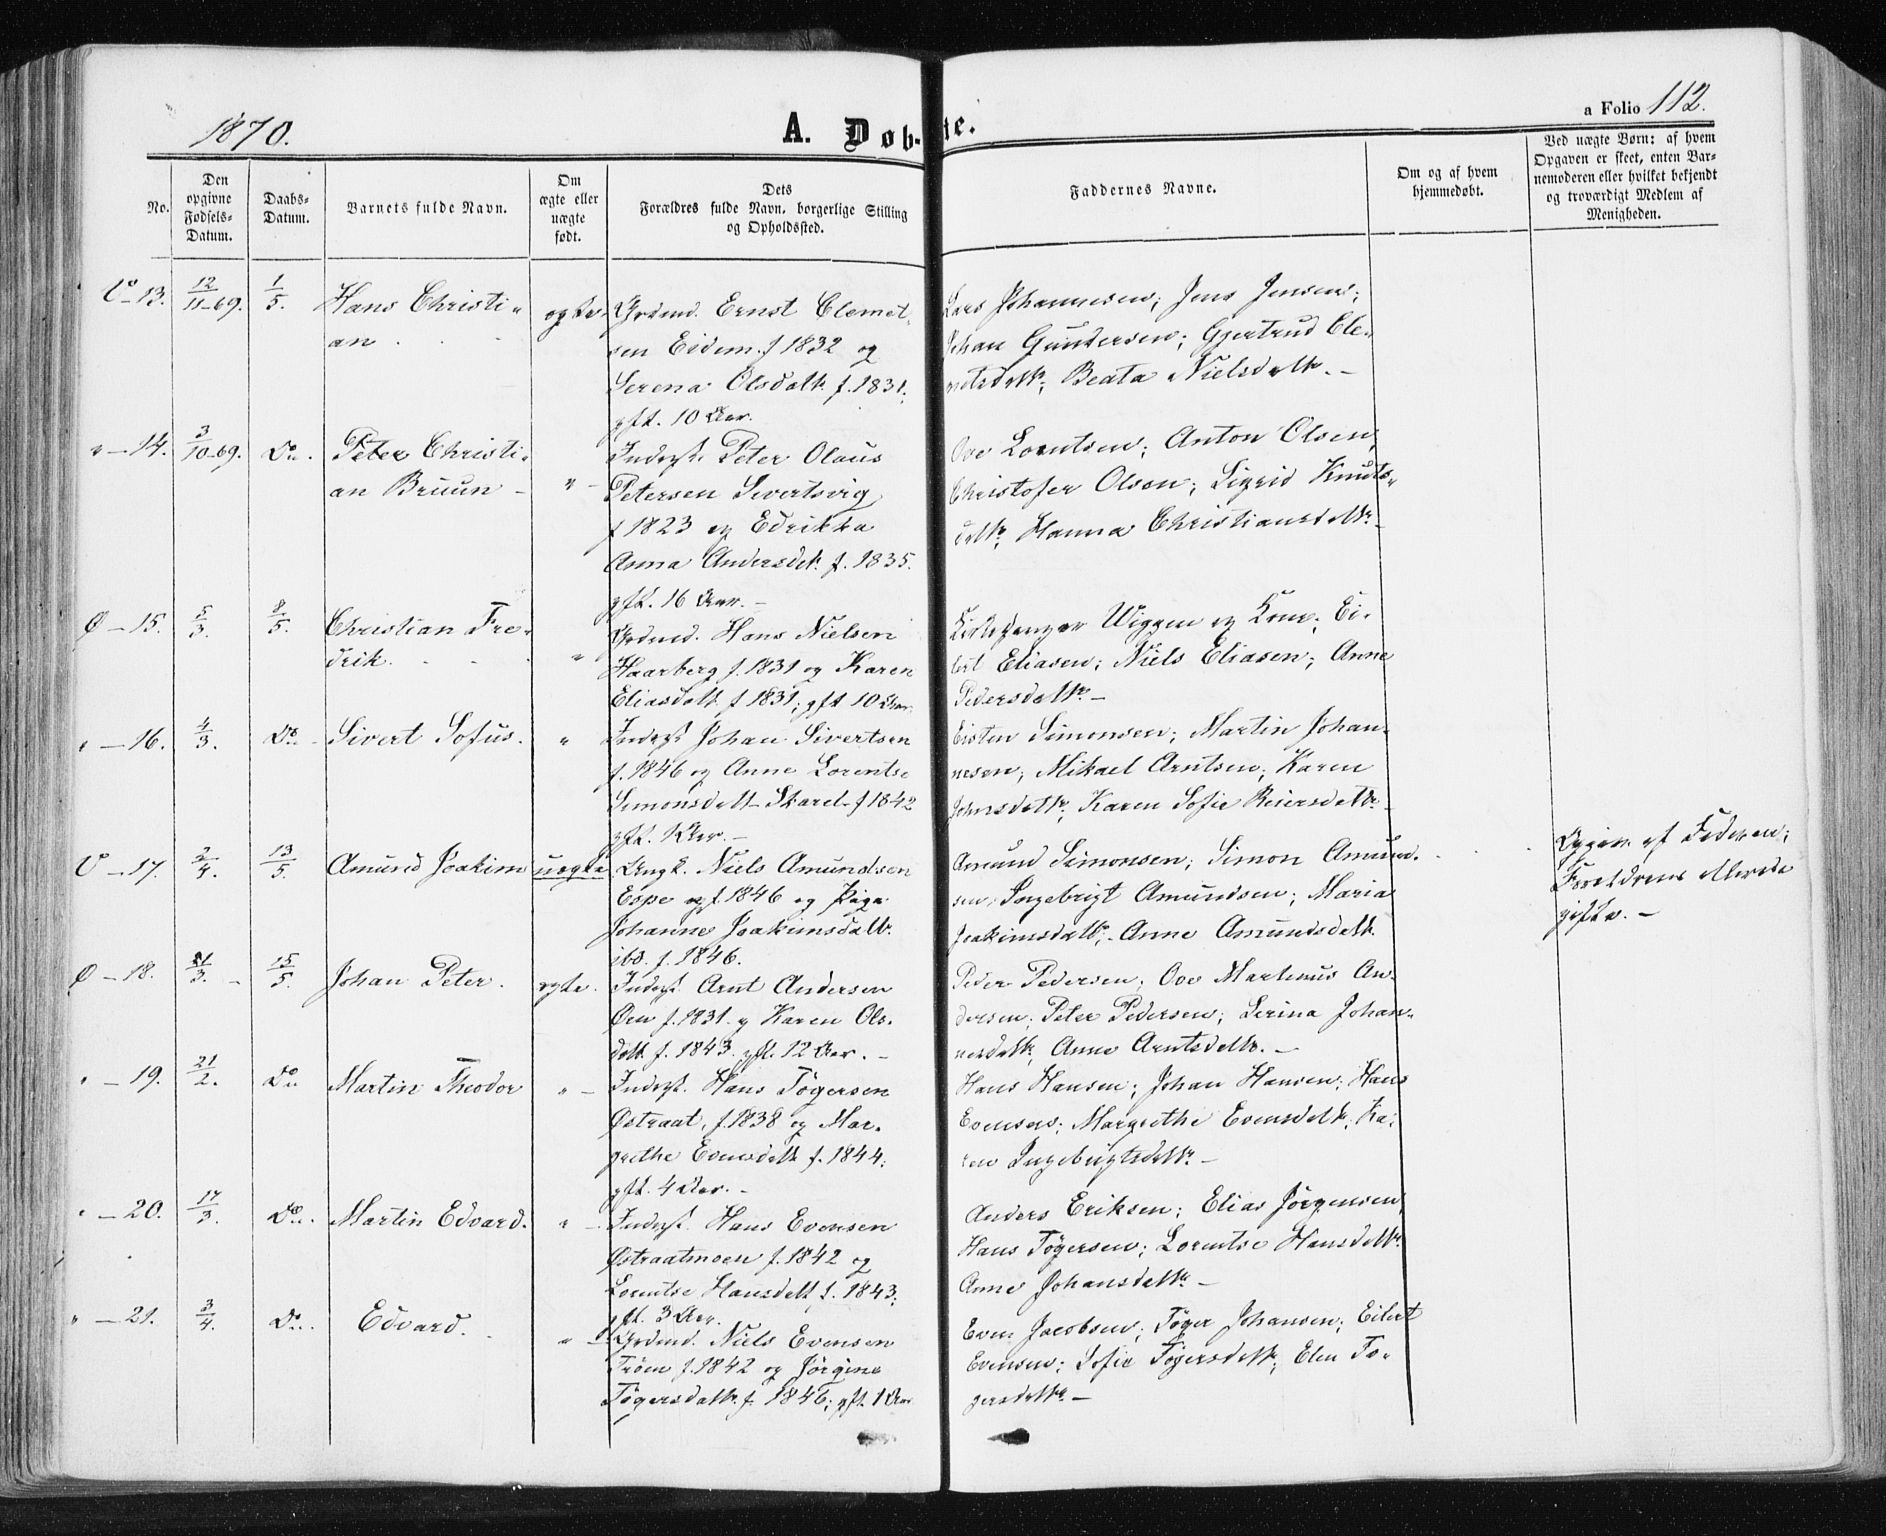 1870.
A. Døb-
te.
a Folio 112.
No.
Den opgivne Fødsels-Datum.
Daabs-Datum.
Barnets fulde Navn.
Om ægte eller uægte født.
Dets Forældres fulde Navn, borgerlige Stilling og Opholdssted.
Faddernes Navne.
Om og af hvem hjemmedøbt.
Ved uægte Børn: af hvem Opgaven er skeet, enten Barnemoderen eller hvilket bekjendt og troværdigt Medlem af Menigheden.
U - 13. 12/11-69. 1/5. Hans Christi-
an
ægte
Grdmd. Ernst Clemet-
sen Eidem f 1832 og
Serena Olsdatt. f. 1831;
gft. 10 Aar.
Lars Johannesen; Jens Jensen;
Johan Gundersen; Gjertrud Cle-
metsdttr; Beata Nielsdttr. -
" - 14. 3/10-69. Do. Peter Christi-
an Bruun -
" -
Inderst. Peter Olaus
Petersen Sivertsvig
f 1823 og Edrikka
Anna Andersdtt. f. 1835.
gft. 16 Aar. -
Ove Lorntsen; Anton Olsen,
Christofer Olsen; Sigrid Knuts-
dttr; Hanna Christiansdttr. -
Ø - 15. 5/3. 8/5. Christian Fre-
drik.
"
Grdmd. Hans Nielsen
Haarberg f. 1831 og Karen
Eliasdatt f 1831; gft 10 Aar.
Kirkesanger Wiggen og Kone; Ei-
lert Eliasen; Niels Eliasen; Anne
Pedersdattr. -
" - 16. 4/3. Do. - Sivert Sofus.
"
Inderst Johan Sivertsen
f. 1846 og Anne Lorentse
Simonsdatt Skaret f 1842
gft. 1 Aar. -
Eisten Simonsen; Martin Johan-
nesen; Mikael Arntsen; Karen
Johnsdattr; Karen Sofie Reiersdattr. -
U - 17. 2/4. 13/5. Amund Joakim
uægte
Ungk. Niels Amundsen
Espe f 1846 og Pige
Johanne Joakimsdattr.
ibd. f. 1846.
Amund Simonsen; Simon Amund-
sen; Ingebrigt Amundsen; Maria
Joakimsdattr; Anne Amundsdatt.
Opgiv. af Faderen;
Forældrene allerede
gifte. -
Ø - 18. 21/3. - 15/5. Johan Peter.
ægte.
Inderst. Arnt Andersen
Ørn f. 1831 og Karen Ols-
datt f. 1843. gft. 12 Aar. -
Peder Pedersen; Ove Martinus An-
dersen; Peter Pedersen; Serina Johan-
nesdatt; Anne Arntsdattr. -
" - 19. 21/2. Do Martin Theodor
" -
Inderst. Hans Tøgersen
Østraat, f. 1838 og Mar-
grethe Evensdatt f. 1844;
gft. 4 Aar. -
Hans Hansen; Johan Hansen; Hans
Evensen; Margrethe Evensdatt; Ka-
ren Ingebrigtsdattr. -
" - 20. 17/3. Do. Martin Edvard.
" -
Inderst. Hans Evensen
Østraatmoen f. 1842 og
Lorentse Hansdatt f. 1843;
gft. 3 Aar.
Anders Eriksen; Elias Jørgensen;
Hans Tøgersen; Lorentse Hansdattr.
Anne Johansdattr. -
" - 21. 3/4. Do. Edvard.
" -
Grdmd. Niels Evensen
Trøen f. 1842 og Jørgine
Tøgersdatt. f. 1846; gft. 1 Aar
Even Jacobsen; Tøger Johansen; Eilert
Evensen; Sofie Tøgersdatt; Elen Tø-
gersdattr. -